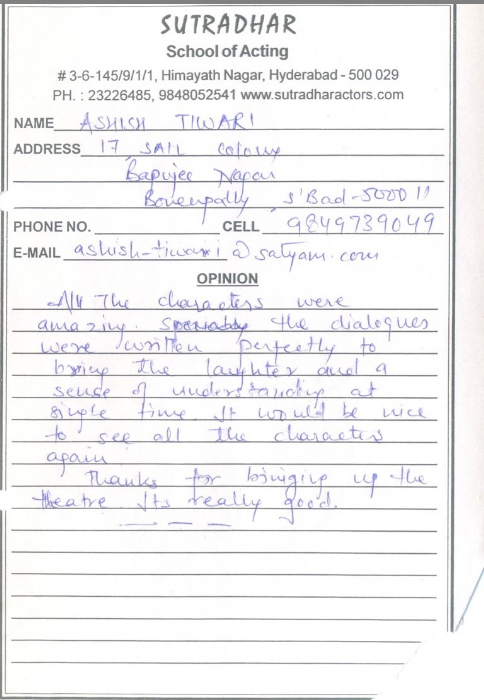 SUTRADHAR
School of Acting
# 3-6-145/9/1/1, Himayath Nagar, Hyderabad - 500 029
PH. : 23226485, 9848052541 www.sutradharactors.com
NAME ASHISH TIWARI
ADDRESS 17 SAIL Colony
Bapujee Nagar
Bowenpally S'Bad-500011
PHONE NO. CELL 9849739049
E-MAIL ashish-tiwari@satyam.com
OPINION
All the characters were
amazing. the dialogues
were written perfectly to
bring the laughter and a
sense of understanding at
single time. It would be nice
to see all the characters
again
Thanks for bringing up the
theatre. Its really good.